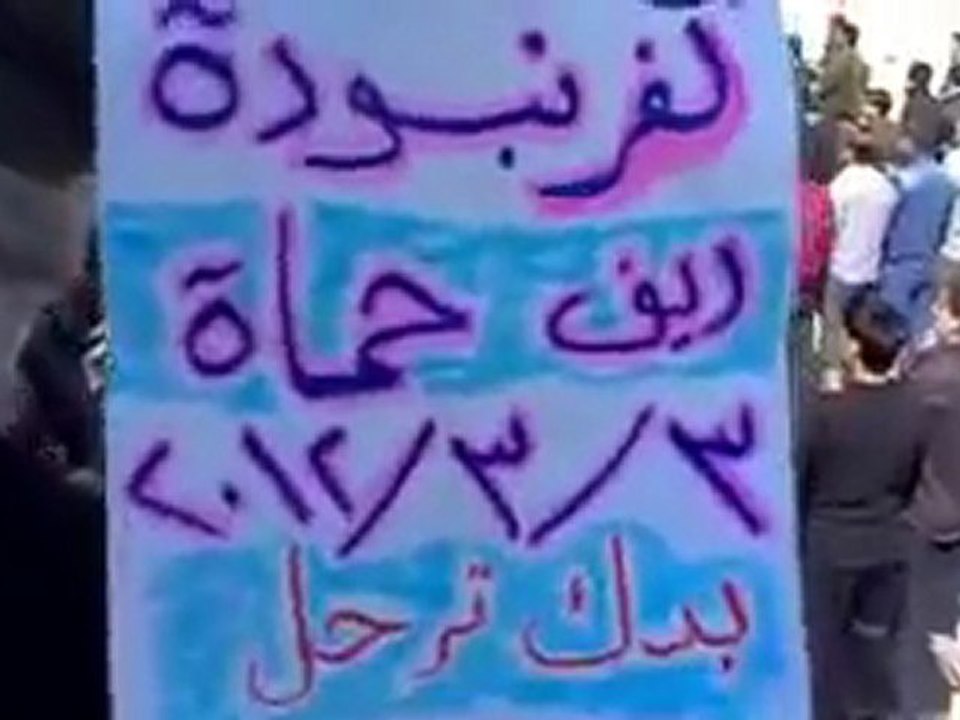 كفرنبودة
ريف حماة
٣/٣/٢٠١٢
بدك ترحل